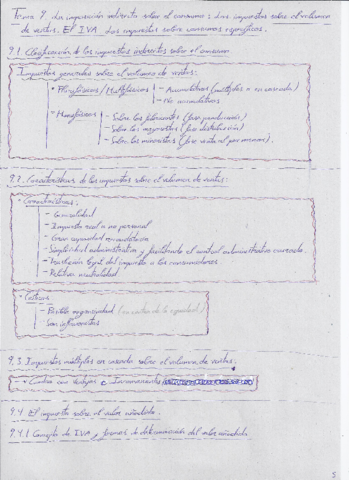 Tema 9. La imposición indirecta sobre el consumo: Los impuestos sobre el volumen
de ventas. El IVA. Los impuestos sobre consumos específicos.
9.1. Clasificación de los impuestos indirectos sobre el consumo
Impuestos generales sobre el volumen de ventas:
• Plurifásicos / Multifásicos - Acumulativos (múltiples o en cascada)
- No acumulativos
• Monofásicos - Sobre los fabricantes (fase producción)
- Sobre los mayoristas (fase distribución)
- Sobre los minoristas (fase venta al por menor).
9.2. Características de los impuestos sobre el volumen de ventas:
• Características:
- Generalidad
- Impuesto real o no personal
- Gran capacidad recaudatoria
- Simplicidad administrativa y facilidad el control administrativo cruzado.
- Traslación legal del impuesto a los consumidores
- Relativa neutralidad
• Críticas
- Posible regresividad (en contra de la equidad)
- Son inflacionistas
9.3. Impuestos múltiples en cascada sobre el volumen de ventas:
- Ventajas e Inconvenientes
9.4. El impuesto sobre el valor añadido.
9.4.1 Concepto de IVA y formas de determinación del valor añadido
5